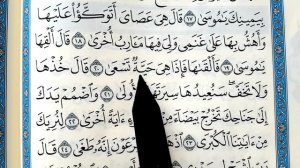 بِيَمِينِكَ يَٰمُوسَىٰ ١٧ قَالَ هِىَ عَصَاىَ أَتَوَكَّؤُا۟ عَلَيْهَا
وَأَهُشُّ بِهَا عَلَىٰ غَنَمِى وَلِىَ فِيهَا مَـَٔارِبُ أُخْرَىٰ ١٨ قَالَ أَلْقِهَا
يَٰمُوسَىٰ ١٩ فَأَلْقَىٰهَا فَإِذَا هِىَ حَيَّةٌ تَسْعَىٰ ٢٠ قَالَ خُذْهَا
وَلَا تَخَفْ سَنُعِيدُهَا ٢١ وَٱضْمُمْ يَدَكَ
إِلَىٰ جَنَاحِكَ تَخْرُجْ بَيْضَآءَ مِنْ ءَايَةً أُخْرَىٰ ٢٢ لِنُرِيَكَ
مِنْ ءَايَٰتِنَا ٱلْكُبْرَى ٢٣ إِنَّهُۥ طَغَىٰ ٢٤